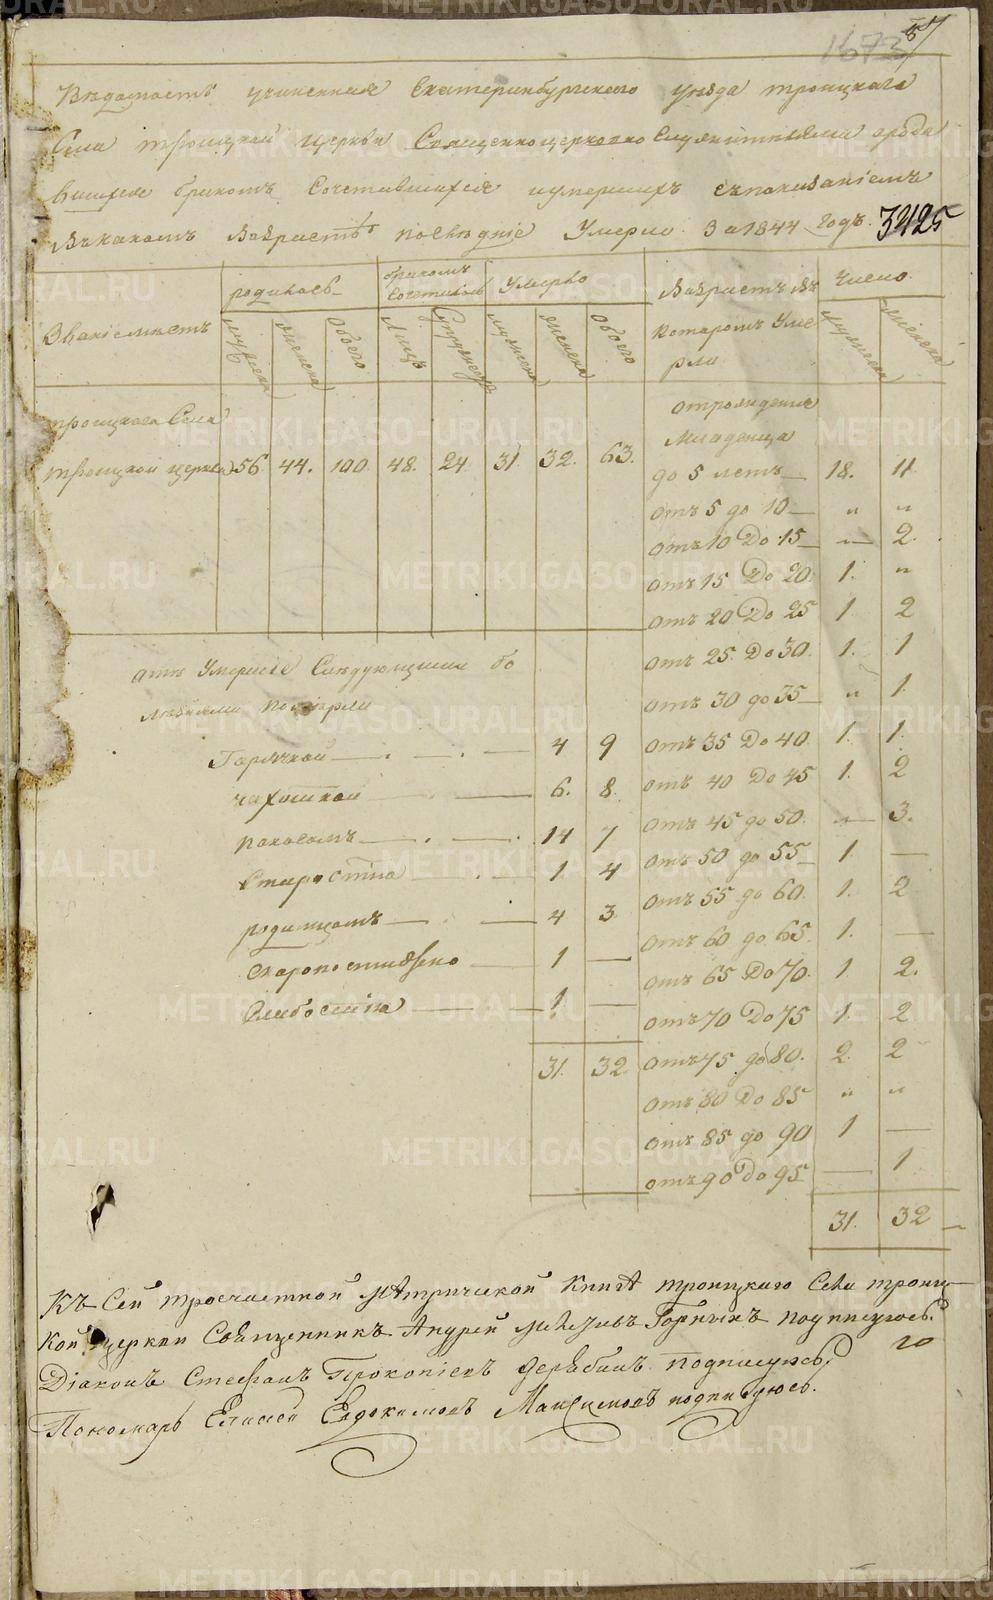 57
1673
Ведомость учиненная Екатеринбургского уезда троицкаго
Села троицкой церкви Священноцерковно Служительми ородив
вшихся браком Сочетавшихся иумерших съпоказаніемъ
Въкакомъ Возрасте последніе Умерли За 1844 Годъ. 3425
родилось браком Сочеталось Умерло Возрастъ въ Число
Званіеместъ мужеска женска обоего Лицъ Супружествъ мужеска женска обоего котаромъ Умерли мужеска женска
троицкаго Села
троицкой церкви 56. 44. 100. 48. 24. 31. 32. 63.
отрождения
младенца
до 5 летъ 18. 11
отъ 5 до 10 „ „
отъ 10 До 15 — 2.
отъ 15 До 20 1. „
отъ 20 До 25 1. 2
отъ 25 До 30 1. 1
отъ 30 до 35 „ 1.
отъ 35 До 40 1. 1.
отъ 40 До 45 1. 2
отъ 45 до 50 — 3.
отъ 50 до 55 1. —
отъ 55 до 60 1. 2
отъ 60 до 65 1. —
отъ 65 До 70. 1 2.
отъ 70 До 75 1. 2
отъ 75 до 80. 2. 2
отъ 80 До 85 „ „
отъ 85 до 90 1 —
отъ 90 До 95 — 1
31. 32
Следующими бо
лезнями померли
Горячкой 4 9
чахоткой 6. 8.
поносомъ 14 7
Старостію 1. 4
родимцомъ 4 3
Скоропостижно 1 —
Слабостію 1 —
31. 32
Къ Сей троечастной Метрической Книге троицкаго Села троиц
кой церкви Священникъ Андрей Горныхъ подписуюсь.
Діаконъ Стефанъ Прокопіевъ Дерябинъ подписуюсь,
Пономарь Елисей Евдокимовъ Максимовъ подписуюсь.
METRIKI.GASO-URAL.RU